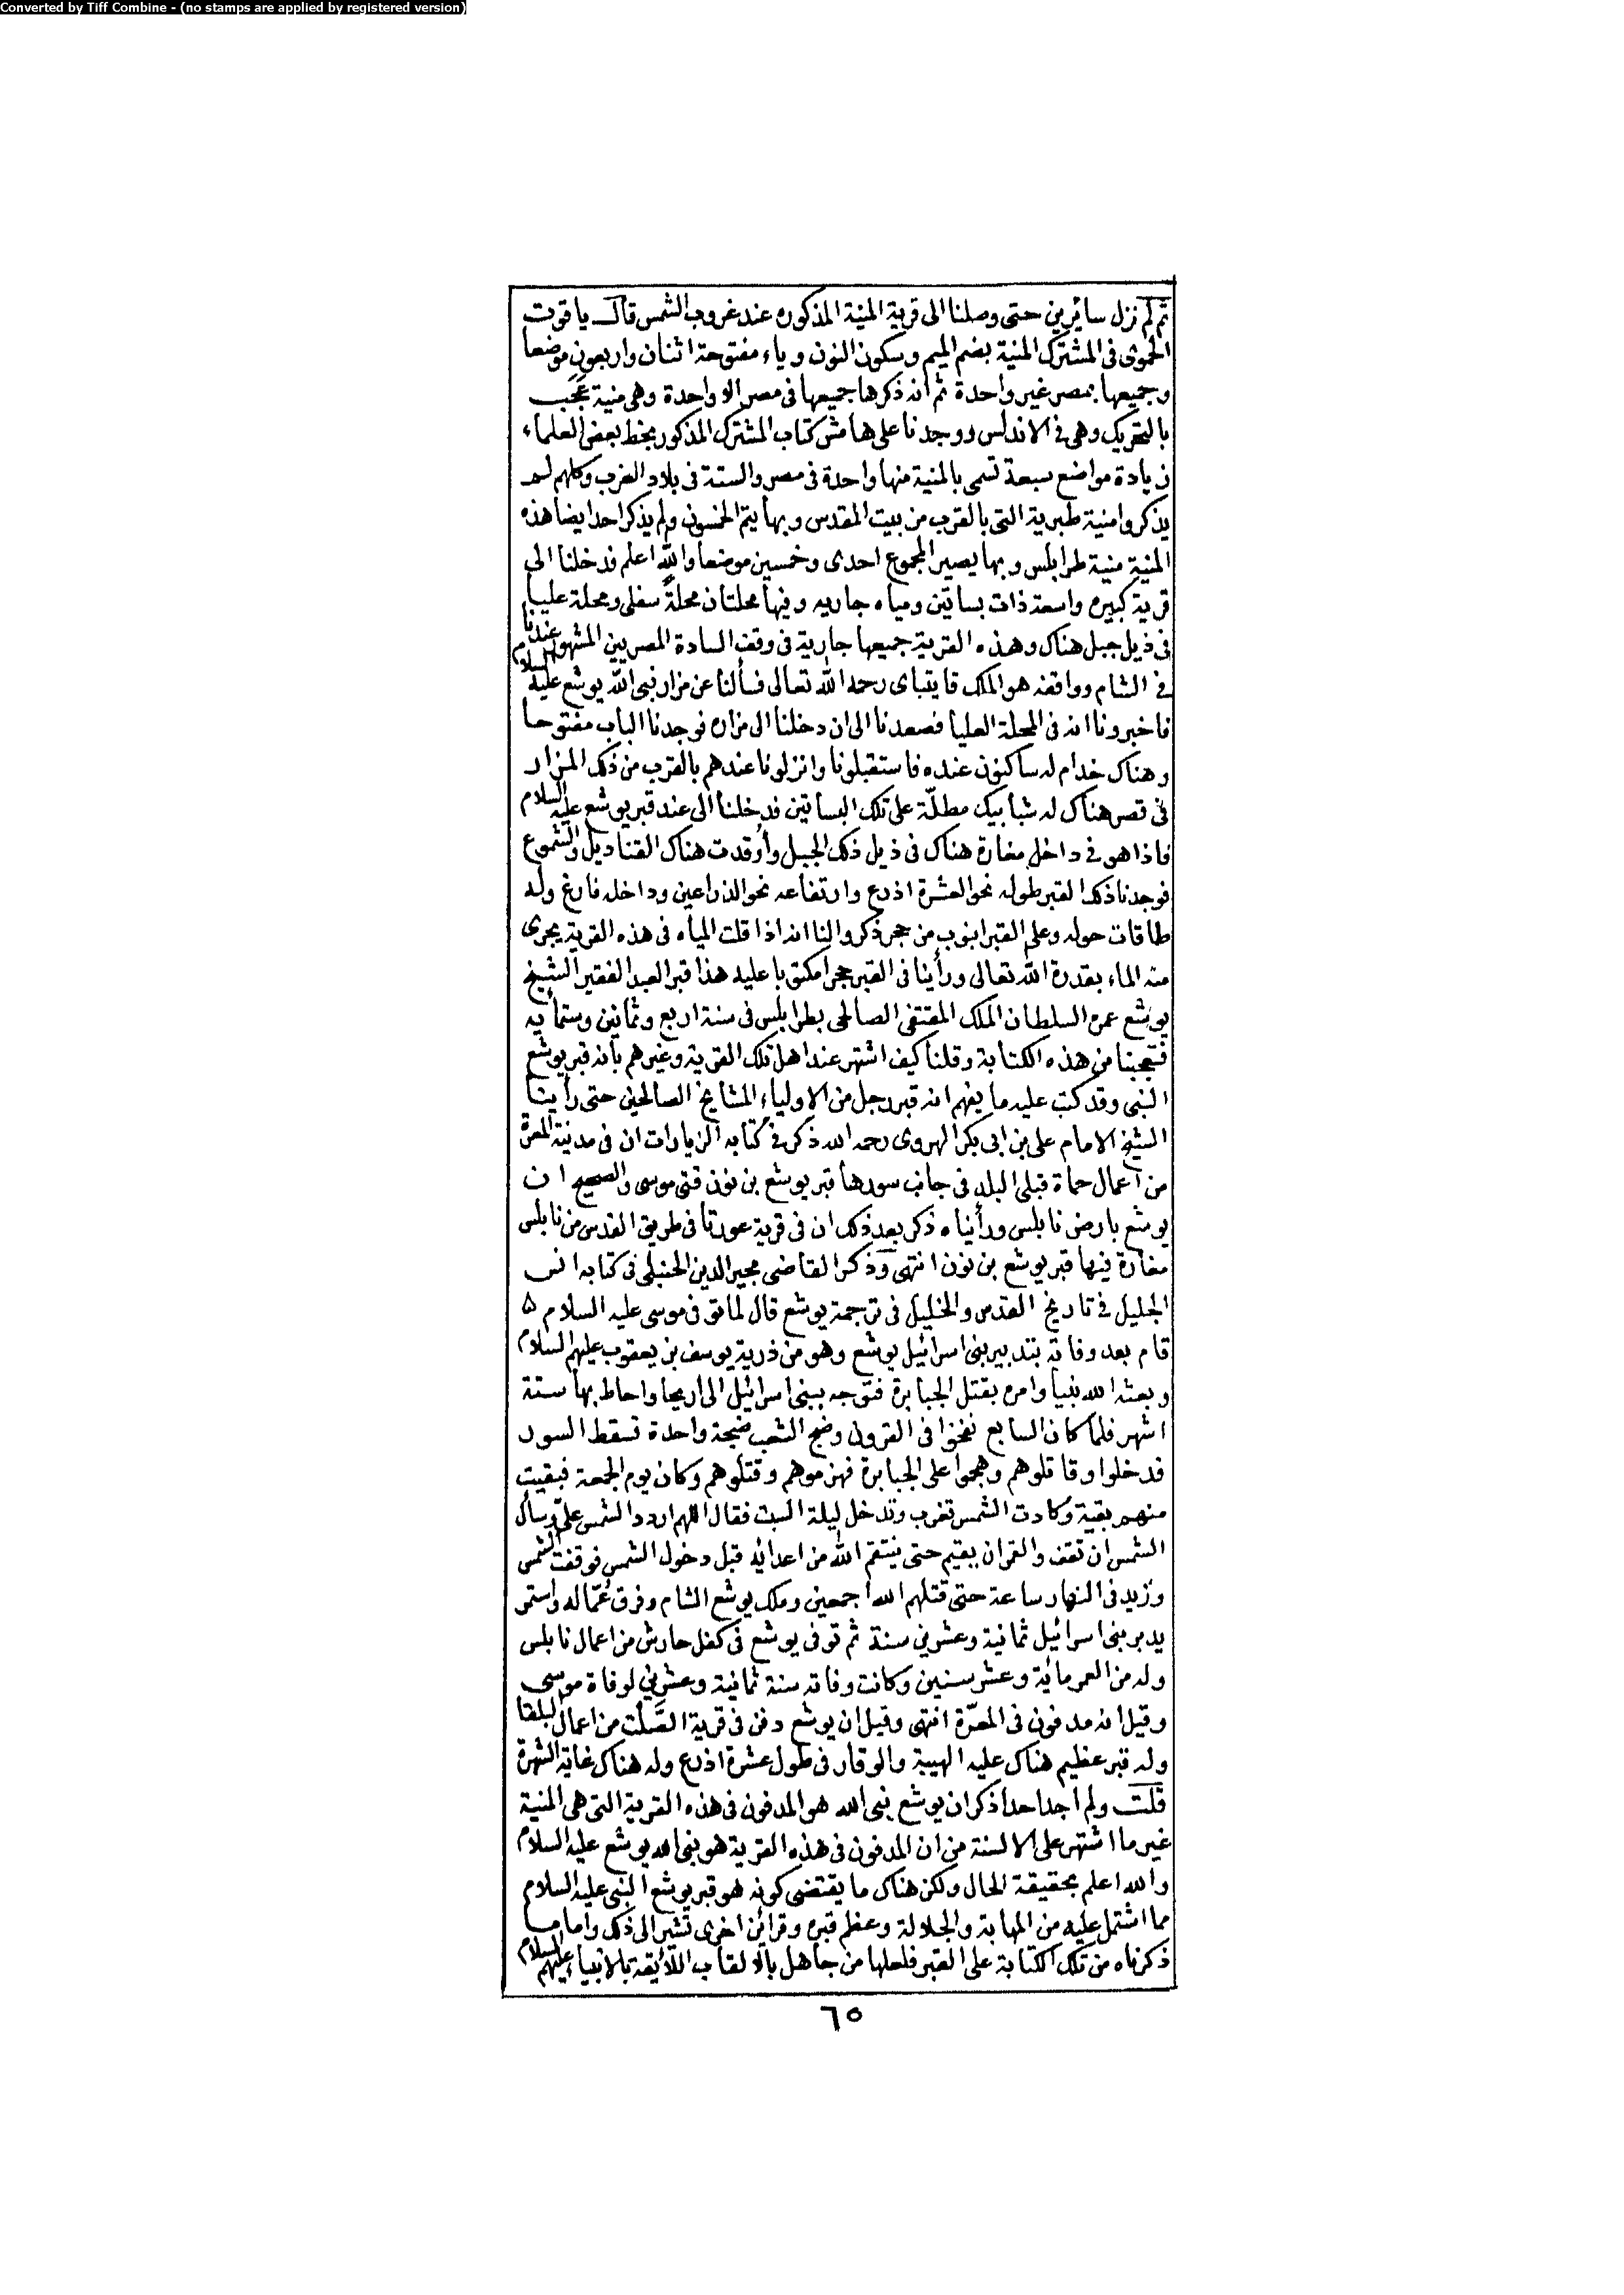 Converted by Tiff Combine - (no stamps are applied by registered version)
ثم لم نزل سائرين حتى وصلنا الى قرية المنية المذكوره عند غروب الشمس قال ياقوت
الحموى فى المشترك المنية بضم الميم وسكون النون وياء مفتوحة اثنان واربعون موضعا
وجميعها بمصر غير واحدة ثم انه ذكرها جميعها فى مصر الا واحدة وهى منية عَجَب
بالتحريك وهى فى الاندلس ووجدنا على هامش كتاب المشترك المذكور بخط بعض العلماء
زيادة مواضع سبعة تسمى بالمنية منها واحدة فى مصر والستة فى بلاد الغرب وكلهم لم
يذكروا منية طبرية التى بالقرب من بيت المقدس وبها يتم الخمسون ولم يذكر احد ايضا هذه
المنية منية طرابلس وبها يصير المجموع احدى وخمسين موضعا والله اعلم فدخلنا الى
قرية كبيره واسعة ذات بساتين ومياه جاريه وفيها محلتان محلة سفلى ومحلة عليا
فى ذيل جبل هناك وهذه القرية جميعها جارية فى وقف السادة المصريين المشهور عندنا
فى الشام وواقفه هو الملك قايتباى رحمه الله تعالى فسألنا عن مزار نبى الله يوشع عليه السلام
فاخبرونا انه فى المحلة العليا فصعدنا الى ان دخلنا الى مزاره فوجدنا الباب مفتوحا
وهناك خدام له ساكنون عنده فاستقبلونا وانزلونا عندهم بالقرب من ذلك المزار
فى قصر هناك له شبابيك مطلّة على تلك البساتين فدخلنا الى عند قبر يوشع عليه السلام
فاذا هو فى داخل مغارة هناك فى ذيل ذلك الجبل وأوقدت هناك القناديل والشموع
فوجدنا ذلك القبر طوله نحو العشرة اذرع وارتفاعه نحو الذراعين وداخله فارغ وله
طاقات حوله وعلى القبر انبوب من حجر ذكروا لنا انه اذا قلت المياه فى هذه القرية يجرى
منه الماء بقدرة الله تعالى ورأينا فى القبر حجرا مكتوبا عليه هذا قبر العبد الفقير الشيخ
يوشع عمره السلطان الملك المقتفى الصالحى بطرابلس فى سنة اربع وثمانين وستمأيه
فتعجبنا من هذه الكتابة وقلنا كيف اشتهر عند اهل تلك القرية وغيرهم بانه قبر يوشع
النبى وقد كتب عليه ما يفهم انه قبر رجل من الاولياء المشايخ الصالحين حتى رأينا
الشيخ الامام على بن ابى بكر الهروى رحمه الله ذكر فى كتابه الزيارات ان فى مدينة المعرة
من اعمال حماة قبلى البلد فى جانب سورها قبر يوشع بن نون فتى موسى والصحيح ان
يوشع بارض نابلس ورأيناه ذكر بعد ذلك ان فى قرية عورتا فى طريق القدس من نابلس
مغارة فيها قبر يوشع بن نون انتهى وذكر القاضى مجير الدين الحنبلى فى كتابه انس
الجليل فى تاريخ القدس والخليل فى ترجمة يوشع قال لما توفى موسى عليه السلام ه
قام بعد وفاته بتدبير بنى اسرائيل يوشع وهو من ذرية يوسف بن يعقوب عليهم السلام
وبعثه الله نبيا وامره بقتل الجبابرة فتوجه ببنى اسرائيل الى اريحا واحاط بها ستة
اشهر فلما كان السابع نفخوا فى القرون وضج الشعب ضجة واحدة فسقط السور
فدخلوا وقاتلوهم وهجموا على الجبابرة فهزموهم وقتلوهم وكان يوم الجمعة فبقيت
منهم بقية وكادت الشمس تغرب وتدخل ليلة السبت فقال اللهم اردد الشمس علىّ وسأل
الشمس ان تقف والقمر ان يقيم حتى ينتقم الله من اعدائه قبل دخول الشمس فوقفت الشمس
وزيد فى النهار ساعة حتى قتلهم الله اجمعين وملك يوشع الشام وفرق عُمّاله واستمر
يدبر بنى اسرائيل ثمانية وعشرين سنة ثم توفى يوشع فى كفل حارش من اعمال نابلس
وله من العمر مائة وعشر سنين وكانت وفاته سنة ثمانية وعشرين لوفاة موسى
وقيل انه مدفون فى المعرّة انتهى وقيل ان يوشع دفن فى قرية الصَّلت من اعمال البلقا
وله قبر عظيم هناك عليه الهيبة والوقار فى طول عشرة اذرع وله هناك غاية الشهرة
قلت ولم اجد احدا ذكر ان يوشع نبى الله هو المدفون فى هذه القرية التى هى المنية
غير ما اشتهر على الالسنة من ان المدفون فى هذه القرية هو نبى الله يوشع عليه السلام
والله اعلم بحقيقة الحال ولكن هناك ما يقتضى كونه هو قبر يوشع النبى عليه السلام
مما اشتمل عليه من المهابة والجلالة وعظم قبره وقرائن اخرى تشير الى ذلك واما ما
ذكرناه من تلك الكتابة على القبر فلعلها من جاهل بالالقاب اللائقة بالانبياء عليهم السلام
٦٥